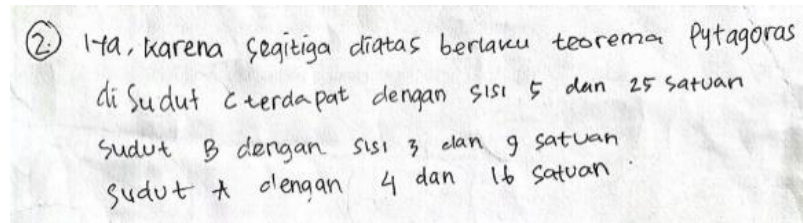 2. Iya, karena segitiga diatas berlaku teorema Pytagoras
di Sudut C terdapat dengan sisi 5 dan 25 satuan
sudut B dengan sisi 3 dan 9 satuan
sudut A dengan 4 dan 16 satuan.